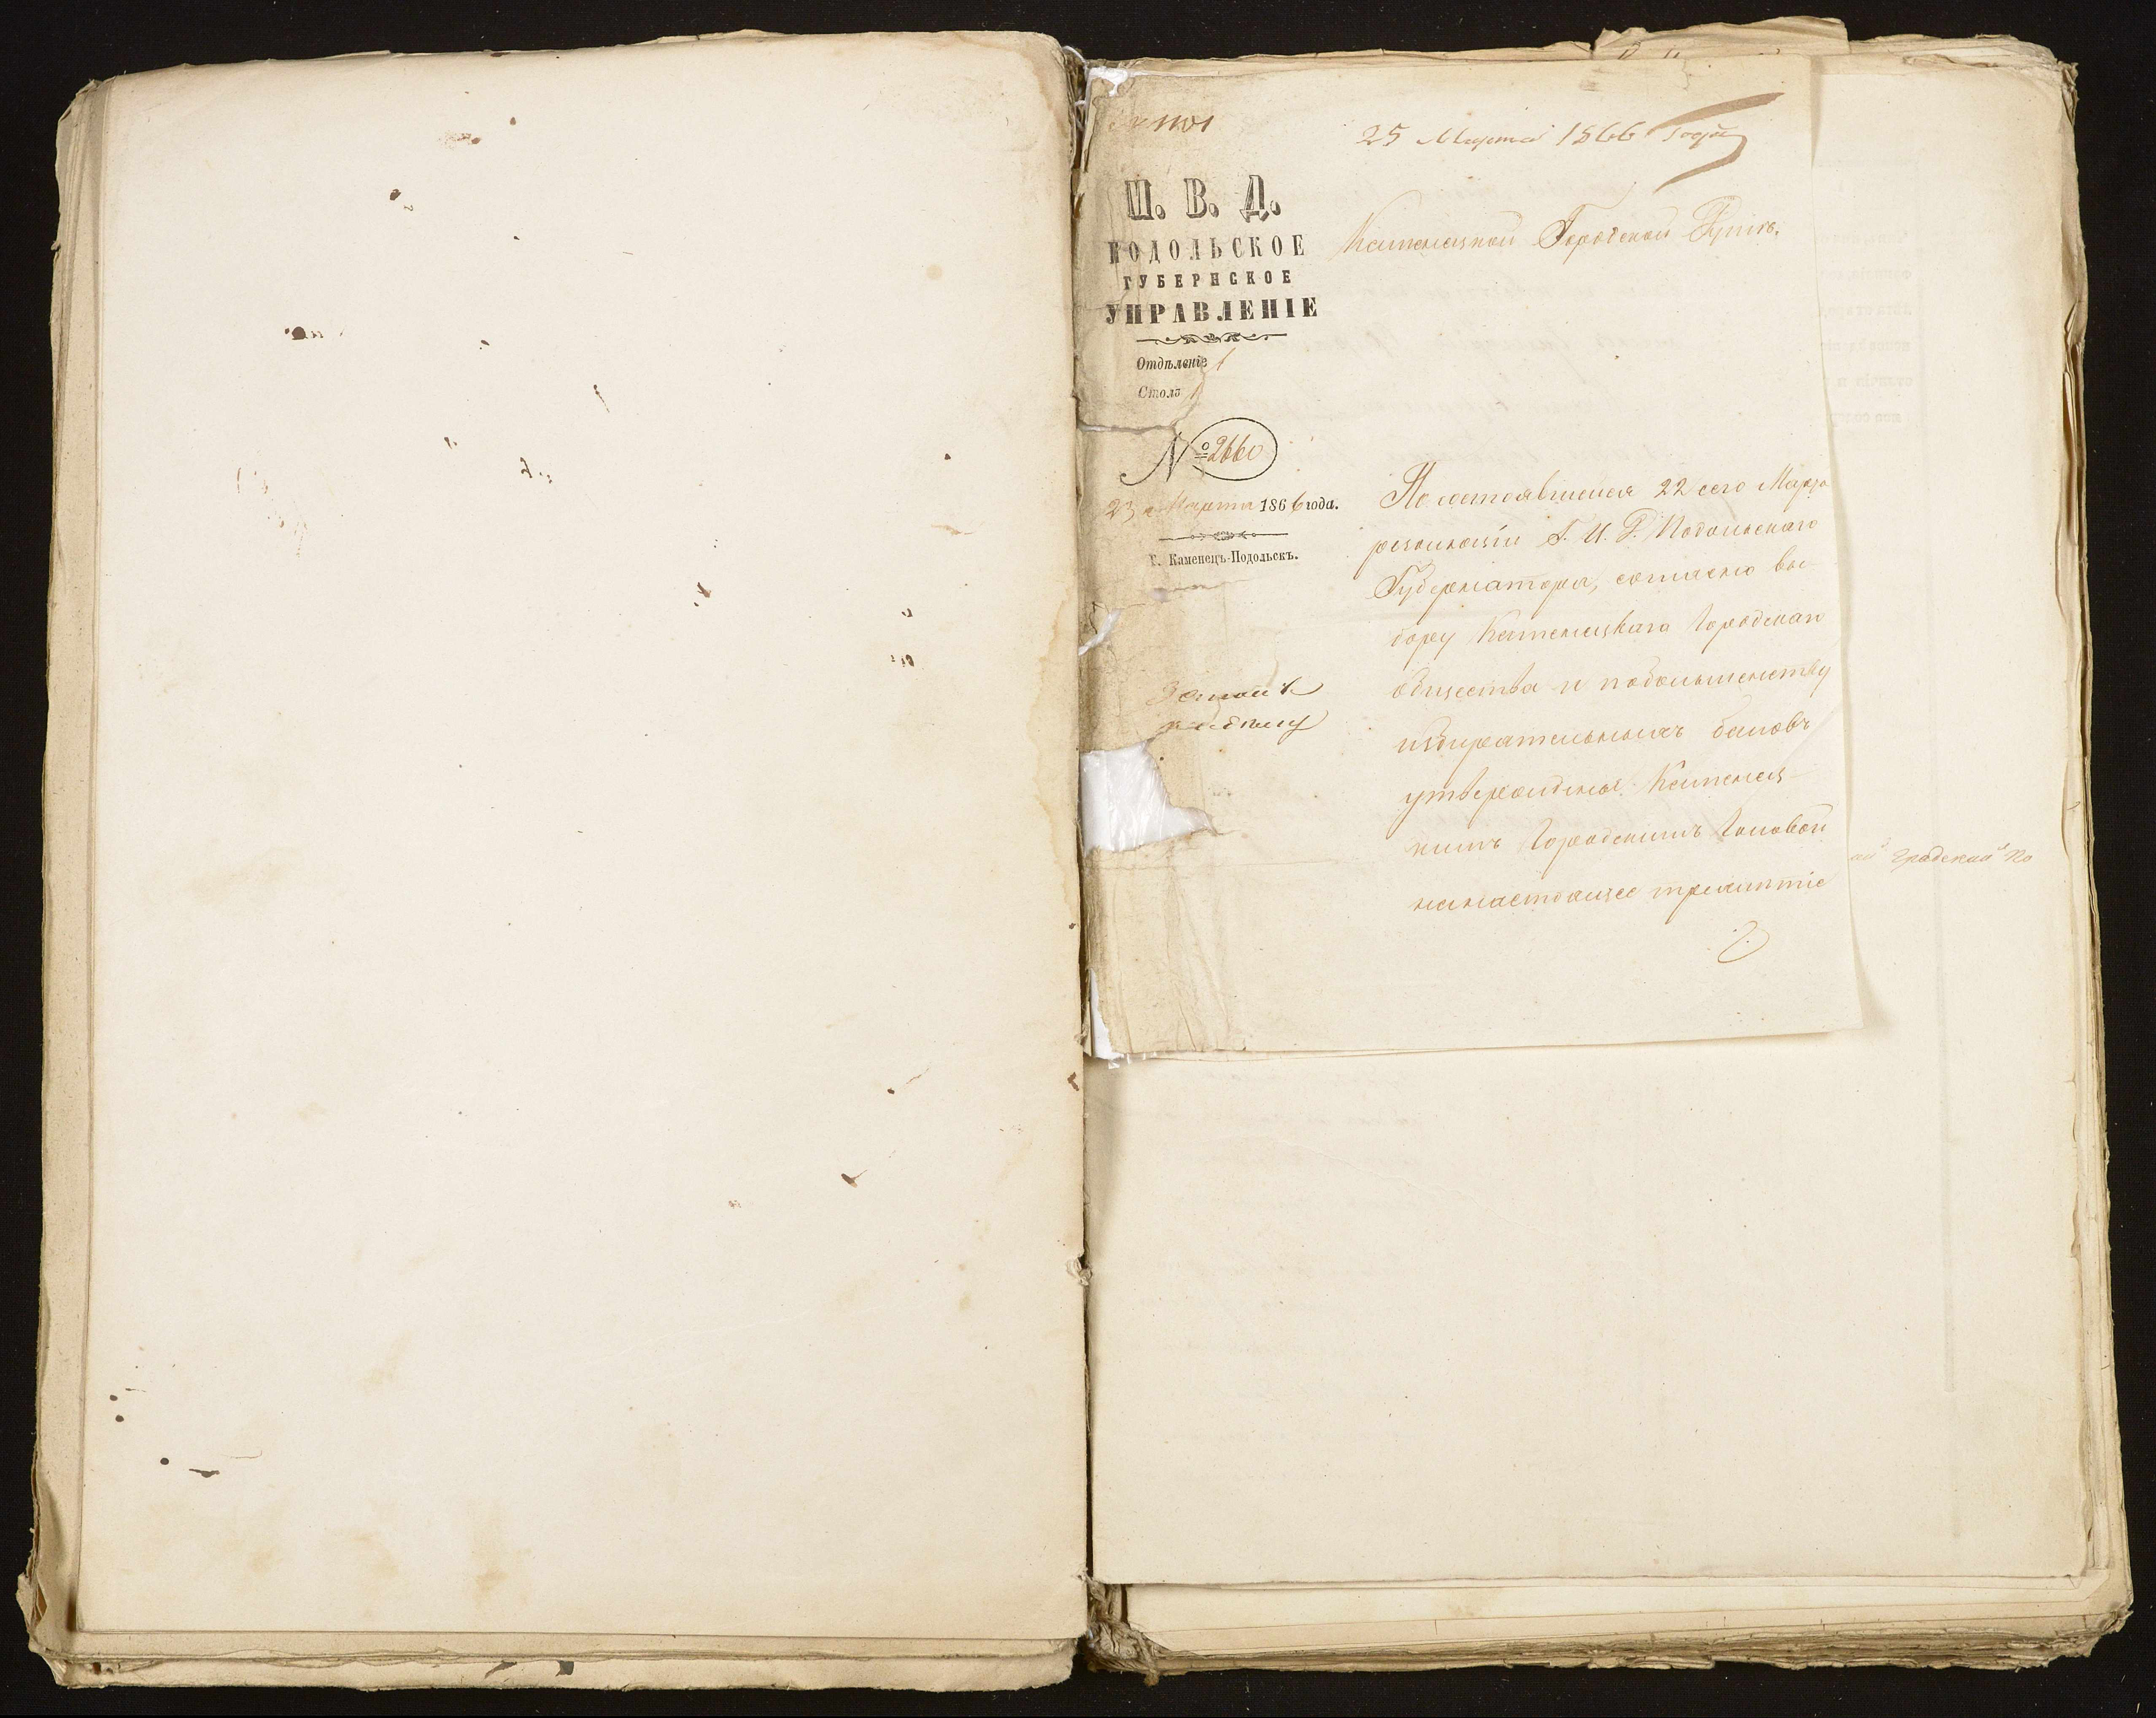 1101
25 Марта 1866 года
М. В. Д.
ПОДОЛЬСКОЕ
ГУБЕРНСКОЕ
УПРАВЛЕНІЕ
Отдѣленіе 1
Столъ 1
№ 2660
23 Марта 1866 года.
Г. Каменецъ-Подольскъ.
Каменецкой Городской Думѣ.
По состоявшейся 22 сего Марта
резолюціи Г. И. Д. Подольскаго
Губернатора, согласно вы-
бору Каменецкаго Городскаго
общества и по большинству
избирательныхъ баловъ
утвержденъ Каменец-
кимъ Городскимъ Головой
на настоящее трехлѣтіе
градской по